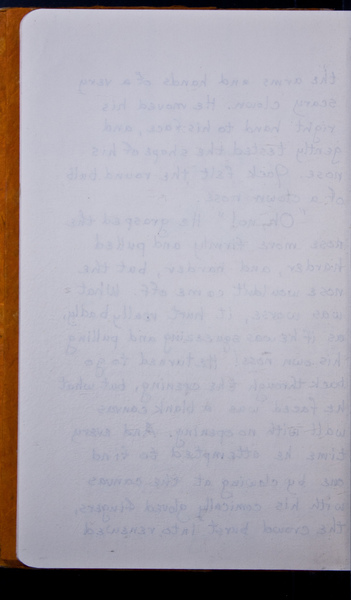 the arms and hands of a very
scary clown. He moved his
right hand to his face, and
gently tested the shape of his
nose. Jack felt the round bulb
of a clown nose.
"Oh, no!" He grasped the
nose more firmly and pulled
harder, and harder, but the
nose wouldn't come off. What
was worse, it hurt really badly,
as if he was squeezing and pulling
his own nose! He turned to go
back through the opening, but what
he faced was a blank canvas
wall with no opening. And every
time he attempted to find
one by clawing at the canvas
with his comically gloved fingers,
the crowd burst into renewed